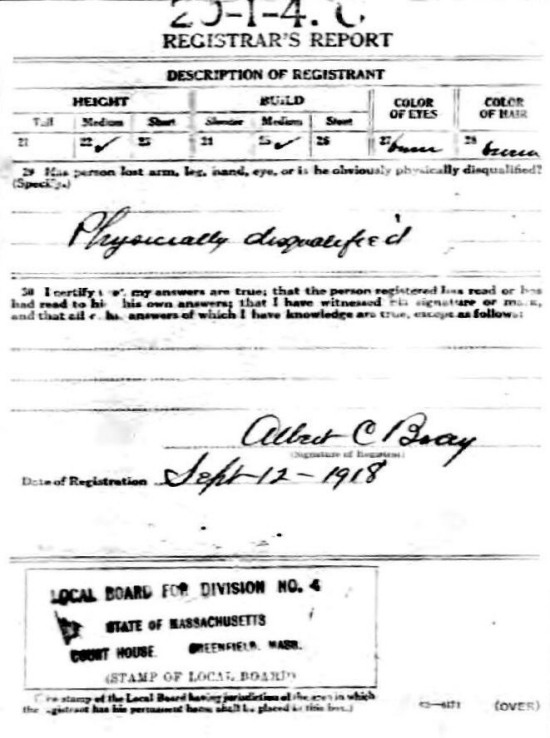 REGISTRAR'S REPORT
DESCRIPTION OF REGISTRANT
HEIGHT BUILD COLOR OF EYES COLOR OF HAIR
Tall Medium Short Slender Medium Stout
21 22 ✓ 23 24 25 ✓ 26 27 brown 28 brown
29 Has person lost arm, leg, hand, eye, or is he obviously physically disqualified?
(Specify.)
Physically disqualified
30 I certify my answers are true; that the person registered has read or has
had read to his own answers; that I have witnessed his signature or mark,
and that all of his answers of which I have knowledge are true, except as follows:
Albert C Bray
(Signature of Registrar)
Date of Registration Sept-12-1918
LOCAL BOARD FOR DIVISION NO. 4
STATE OF MASSACHUSETTS
COURT HOUSE GREENFIELD, MASS.
(STAMP OF LOCAL BOARD)
stamp of the Local Board having jurisdiction of the area in which
the registrant has his permanent home shall be placed in this box.)
(OVER)